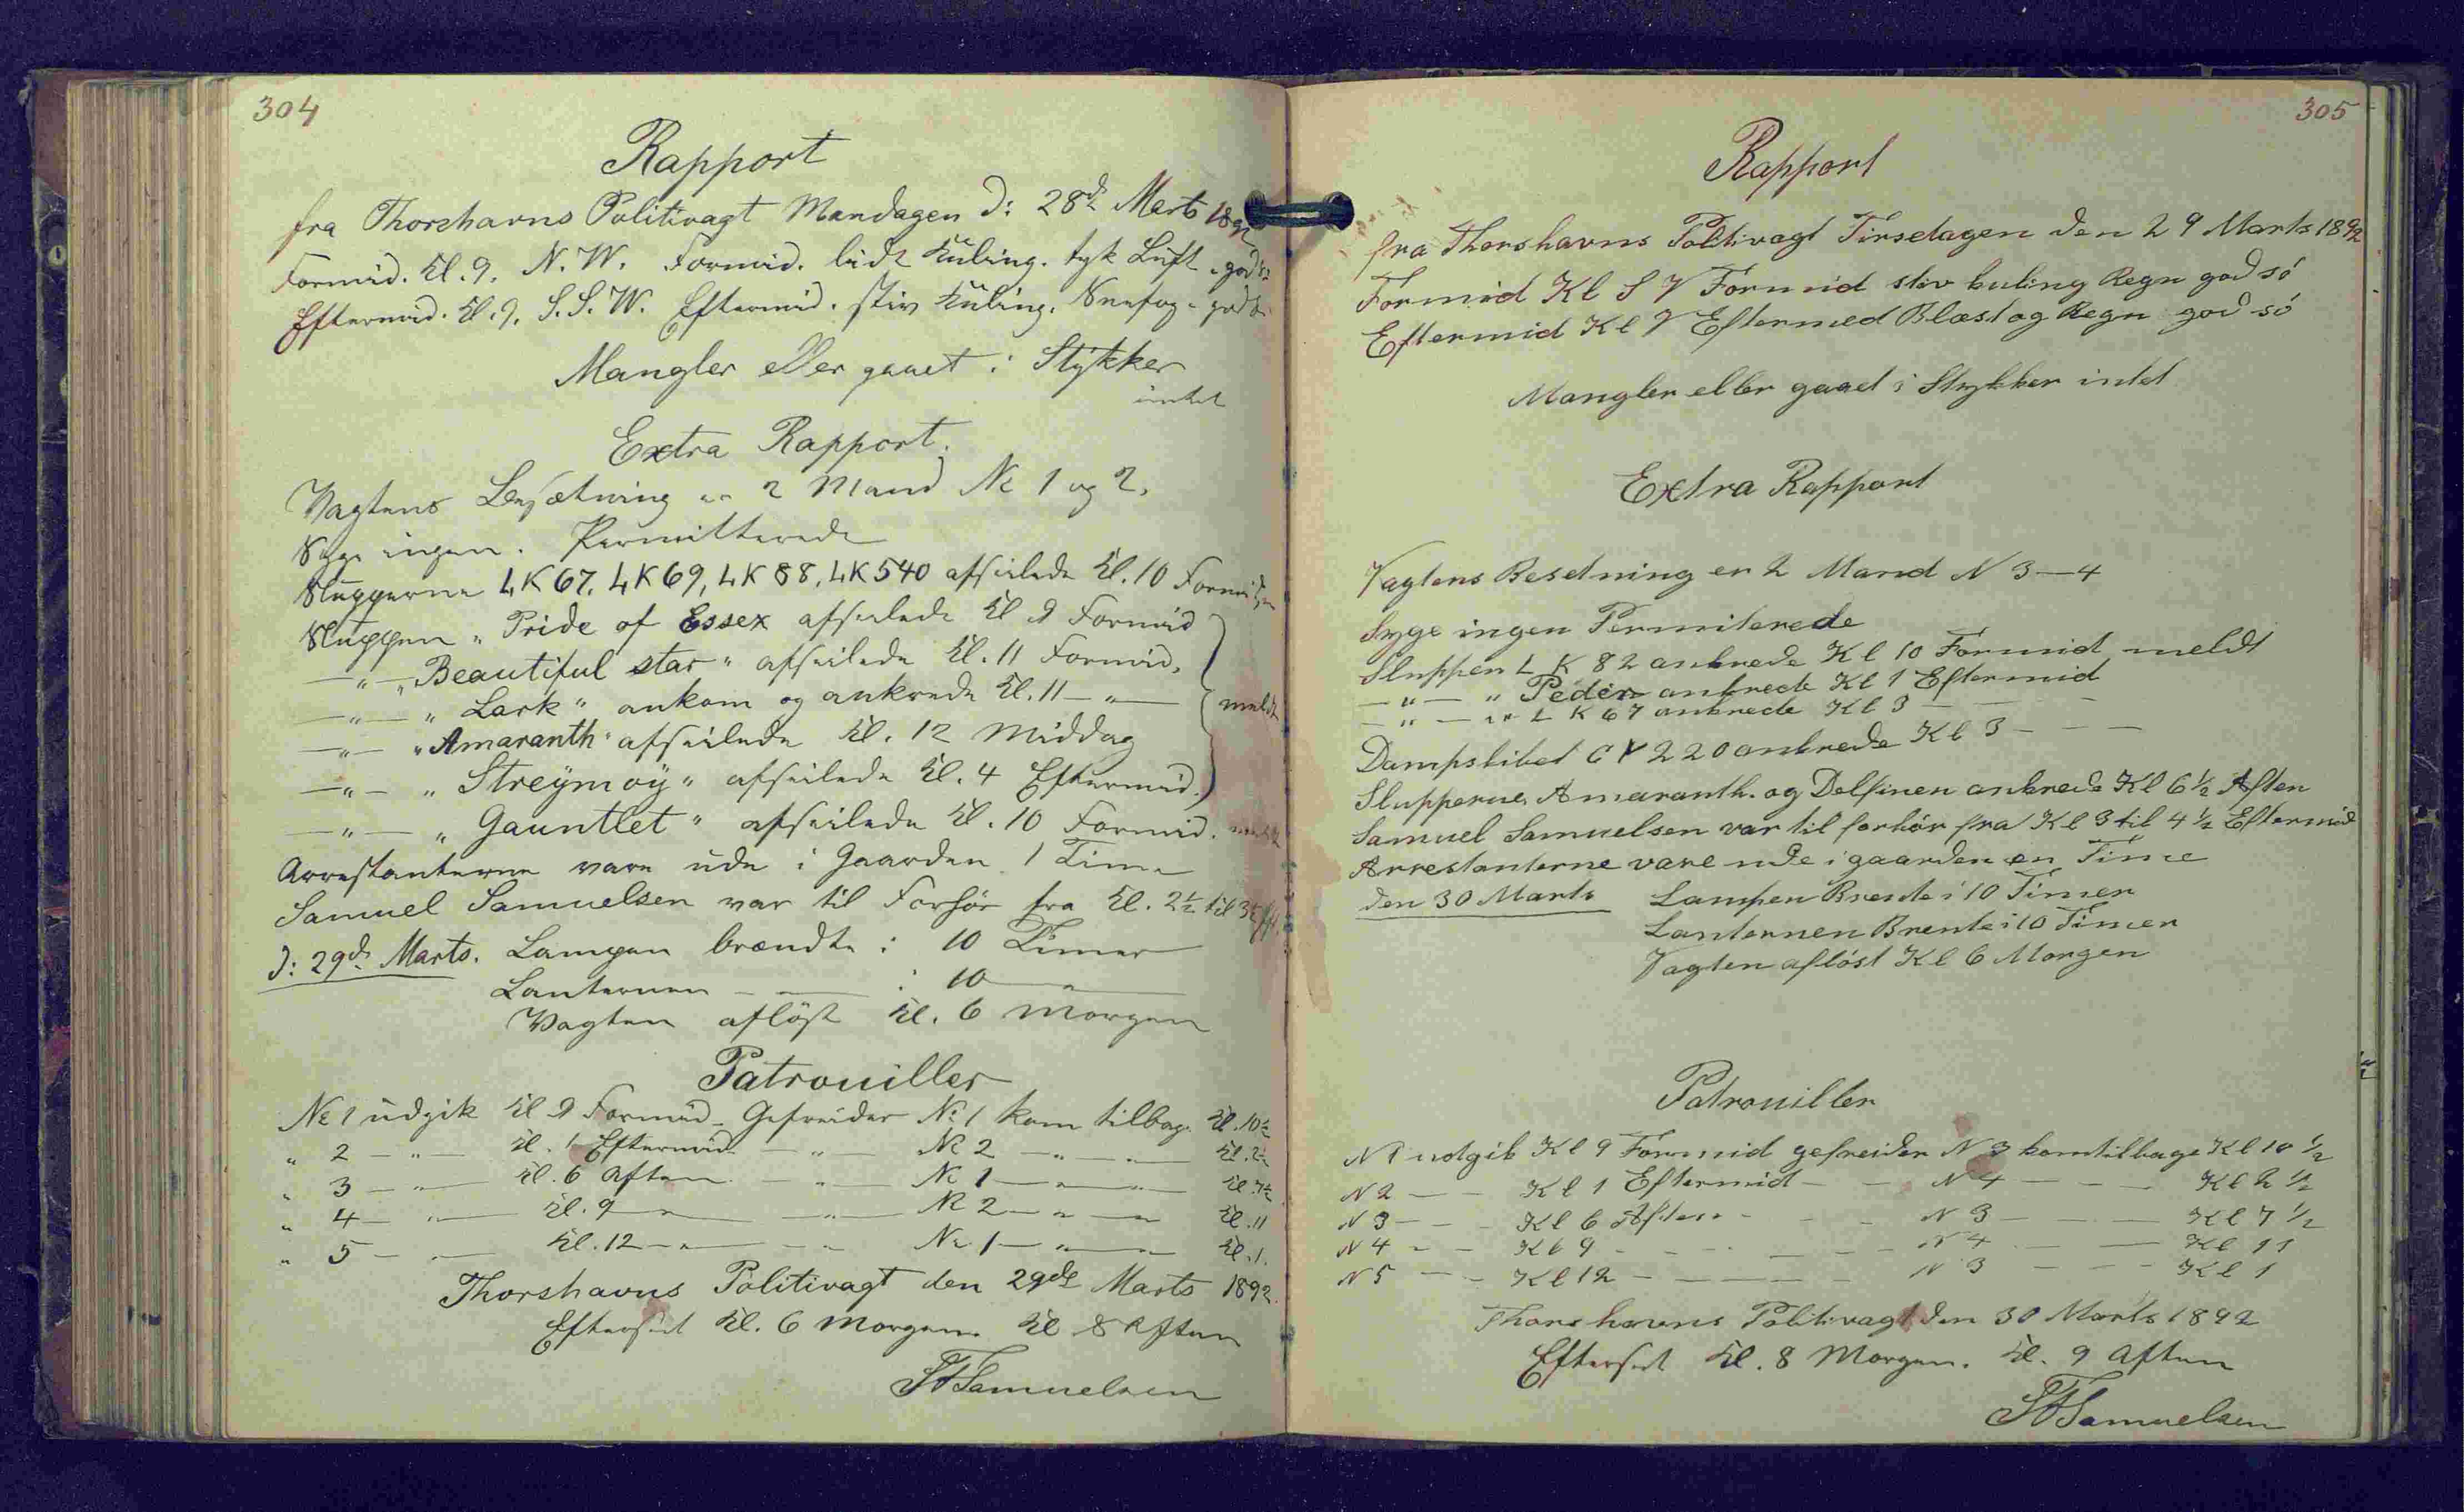 304
Rapport
fra Thorshavns Politivagt Mandagen d: 28de Marts 1892
Formid. Kl. 9. N.W. Formid. lidt Kuling. tyk Luft. god Sø
Eftermid. Kl. 9. S.S.W. Eftermid. stiv Kuling. Snefog. god Sø
Mangler eller gaaet i Stykker
intet
Extra Rapport.
Vagtens Besætning er 2 Mand No 1 og 2.
Syge ingen. Permitterede
Slupperne LK 67, LK 69, LK 88, LK 540 afseilede Kl. 10 Formid
Sluppen " Pride of Essex afseilede Kl 9 Formid
—"— " Beautiful star " afseilede Kl. 11 Formid.
—"— " Lark " ankom og ankrede Kl. 11 —"— meldt
—"— " Amaranth " afseilede Kl. 12 Middag
—"— " Streymoy " afseilede Kl. 4 Eftermid.
—"— " Gauntlet " afseilede Kl. 10 Formid. meldt
Arrestanterne vare ude i Gaarden 1 Time
Samuel Samuelsen var til Forhør fra Kl. 2½ til 3½
d: 29de Marts. Lampen brændte i 10 Timer
Lanternen — — i 10 — " —
Vagten afløst Kl. 6 Morgen
Patrouiller
No 1 udgik Kl 9 Formid. Gefreider No 1 kom tilbage Kl. 10½
" 2 — " — Kl. 1 Eftermid — " — No 2 — " — " — Kl. 2½
" 3 — " — Kl. 6 Aften — " — No 1 — " — " — Kl. 7½
" 4 — " — Kl. 9 — " — — " — No 2 — " — " — Kl. 11
" 5 — — Kl. 12 — " — — " — No 1 — " — " — Kl. 1.
Thorshavns Politivagt den 29de Marts 1892.
Efterset Kl. 6 Morgen. Kl 8 Aften
Samuelsen
305
Rapport
fra Thorshavns Politivagt Tirsdagen den 29 Marts 1892
Formid Kl S V Formid stiv kuling Regn god sö
Eftermid Kl V Eftermed Blæst og Regn god sö
Mangler eller gaaed i Stykker intet
Extra Rapport
Vagtens Besetning er 2 Mand N 3—4
Syge ingen Permiterede
Sluppen L K 82 ankrede Kl 10 Formid meldt
— " — " Peder ankrede Kl 1 Eftermid
— " — " L K 67 ankrede Kl 3 — — —
Dampskibet G Y 220 ankrede Kl 3 — — —
Slupperne Amaranth. og Delfinen ankrede Kl 6½ Aften
Samuel Samuelsen var til forhör fra Kl 3 til 4½ Eftermid
Arrestanterne vare ude i gaarden en Time
den 30 Marts Lampen Brente i 10 Timer
Lanternen Brente i 10 Timer
Vagten aflöst Kl 6 Morgen
Patrouiller
N 1 udgik Kl 9 Formid gefreider N 3 kom tilbage Kl 10½
N 2 — — Kl 1 Eftermid — — N 4 — — — Kl 2½
N 3 — — Kl 6 Aften — — — N 3 — — — Kl 7½
N 4 — — Kl 9 — — — — — N 4 — — Kl 11
N 5 — — Kl 12 — — — — N 3 — — — Kl 1
Thorshavns Politivagt den 30 Marts 1892
Efterset Kl. 8 Morgen. Kl. 9 Aften
Samuelsen